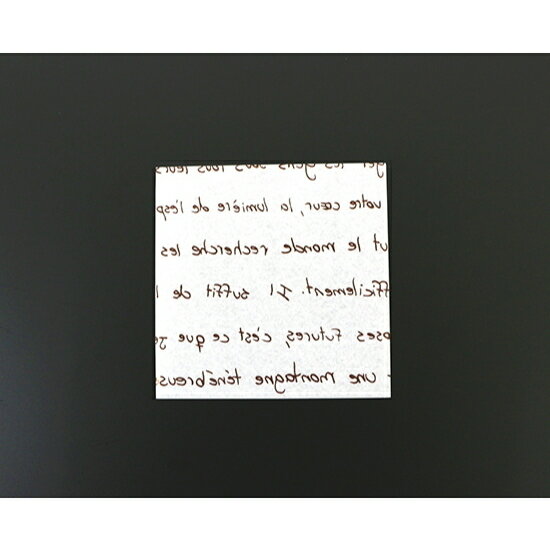 ger les gens sous tous leurs
votre cœur, la lumière de l'esp
ut le monde recherche les
fficilement. Il suffit de
oses futures, c'est ce que je
une montagne ténébreus